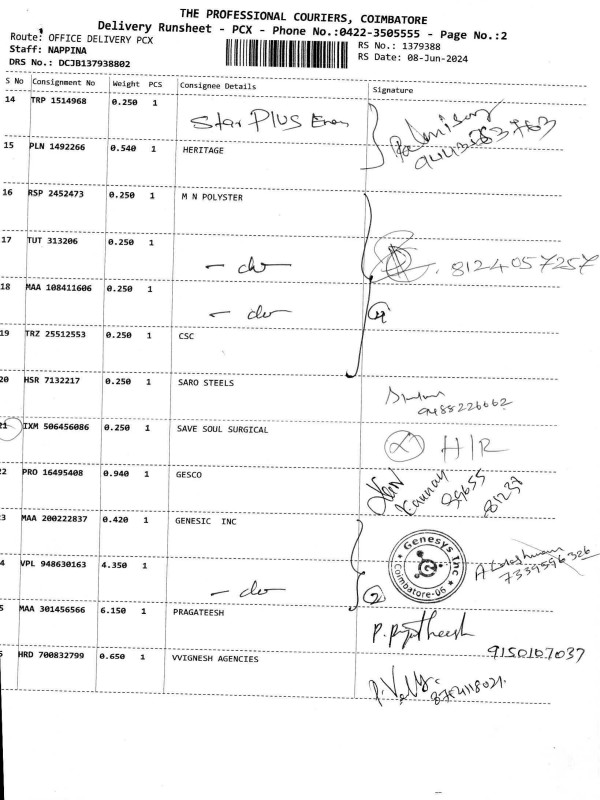 THE PROFESSIONAL COURIERS, COIMBATORE
Delivery Runsheet - PCX - Phone No.:0422-3505555 - Page No.:2
Route: OFFICE DELIVERY PCX
RS No.: 1379388
Staff: NAPPINA
RS Date: 08-Jun-2024
DRS No.: DCJB137938802
S No Consignment No Weight PCS Consignee Details Signature
14 TRP 1514968 0.250 1 Star Plus
15 PLN 1492266 0.540 1 HERITAGE
16 RSP 2452473 0.250 1 M N POLYSTER
17 TUT 313206 0.250 1 - do - 8124057257
18 MAA 108411606 0.250 1 - do - 4
19 TRZ 25512553 0.250 1 CSC
20 HSR 7132217 0.250 1 SARO STEELS
9488226662
21 IXM 506456086 0.250 1 SAVE SOUL SURGICAL H/R
22 PRO 16495408 0.940 1 GESCO
99655
81237
3 MAA 200222837 0.420 1 GENESIC INC
Genesys Inc
Coimbatore-06
7339596326
4 VPL 948630163 4.350 1 - do - 2
5 MAA 301456566 6.150 1 PRAGATEESH
9150107037
HRD 700832799 0.650 1 VVIGNESH AGENCIES